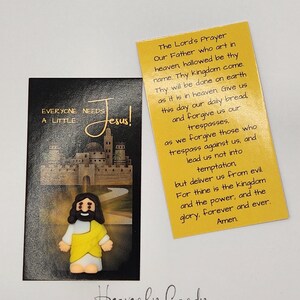 EVERYONE NEEDS
A LITTLE Jesus!
The Lord's Prayer
Our Father who art in
heaven, hallowed be thy
name. Thy kingdom come.
Thy will be done on earth
as it is in heaven. Give us
this day our daily bread,
and forgive us our
trespasses,
as we forgive those who
trespass against us, and
lead us not into
temptation,
but deliver us from evil.
For thine is the kingdom
and the power, and the
glory, forever and ever.
Amen.
Heavenly